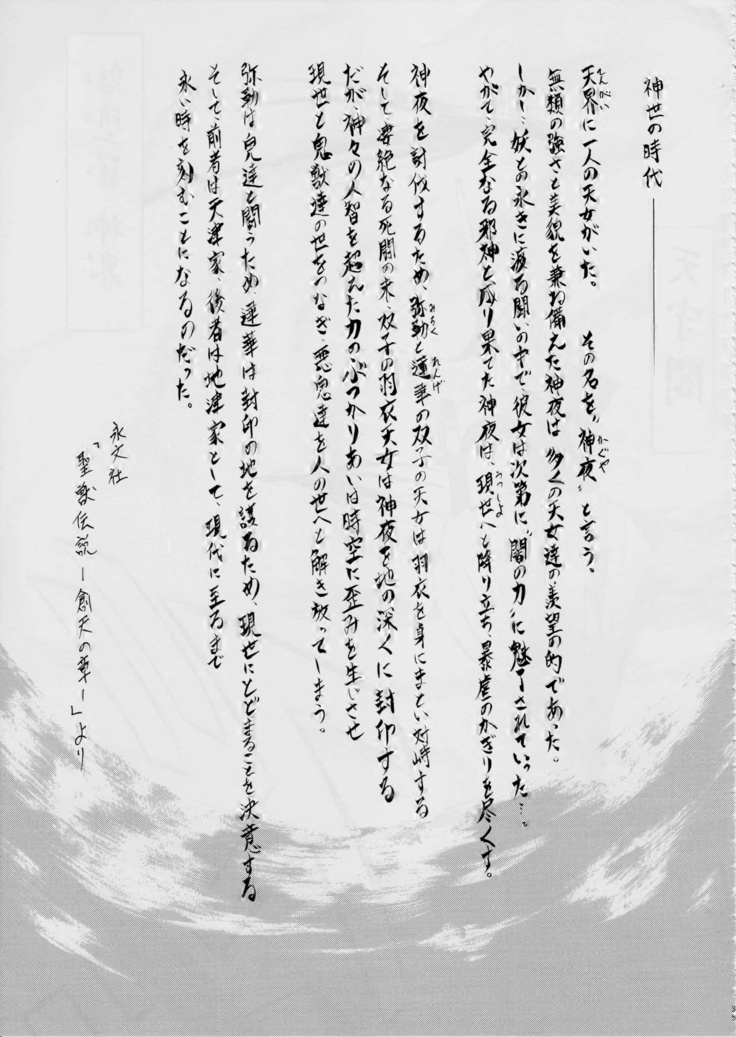 神世の時代――――
天界に一人の天女がいた。 その名を〝神夜〟と言う。
無類の強さと美貌を兼ね備えた神夜は、多くの天女達の羨望の的であった。
しかし、妖との永きに渡る闘いの中で彼女は次第に〝闇の力〟に魅了されていった…。
やがて、完全なる邪神と成り果てた神夜は、現世へと降り立ち、暴虐のかぎりを尽くす。
神夜を討伐するため、弥勒と蓮華の双子の天女は羽衣を身にまとい対峙する
そして凄絶なる死闘の末、双子の羽衣天女は神夜を地の深くに封印する
だが、神々の人智を超えた力のぶつかりあいは時空に歪みを生じさせ
現世と鬼獣達の世をつなぎ、悪鬼達を人の世へと解き放ってしまう。
弥勒は鬼達と闘うため、蓮華は封印の地を護るため、現世にとどまることを決意する
そして前者は天津家、後者は地津家として、現代に至るまで
永い時を刻むことになるのだった。
永文社
「聖獣伝説ー創天の章ー」より